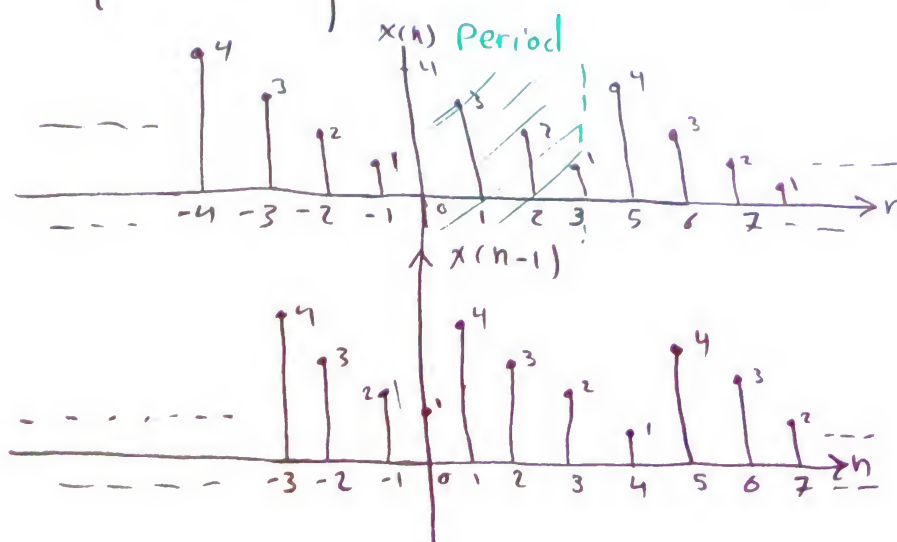 x(n) Period
4
4 3 2 1 3 2 1 4 3 2 1
-4 -3 -2 -1 0 1 2 3 5 6 7 n
x(n-1)
4 3 2 1 4 3 2 1 4 3 2
-3 -2 -1 0 1 2 3 4 5 6 7 n